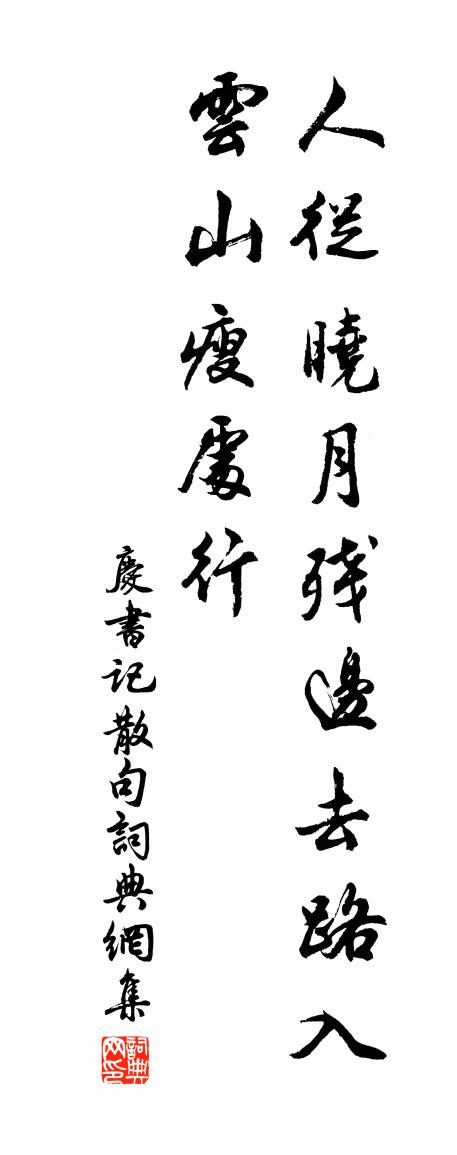 人從曉月殘邊去路入
雲山瘦處行
慶書記散句詞典網集
詞典网印